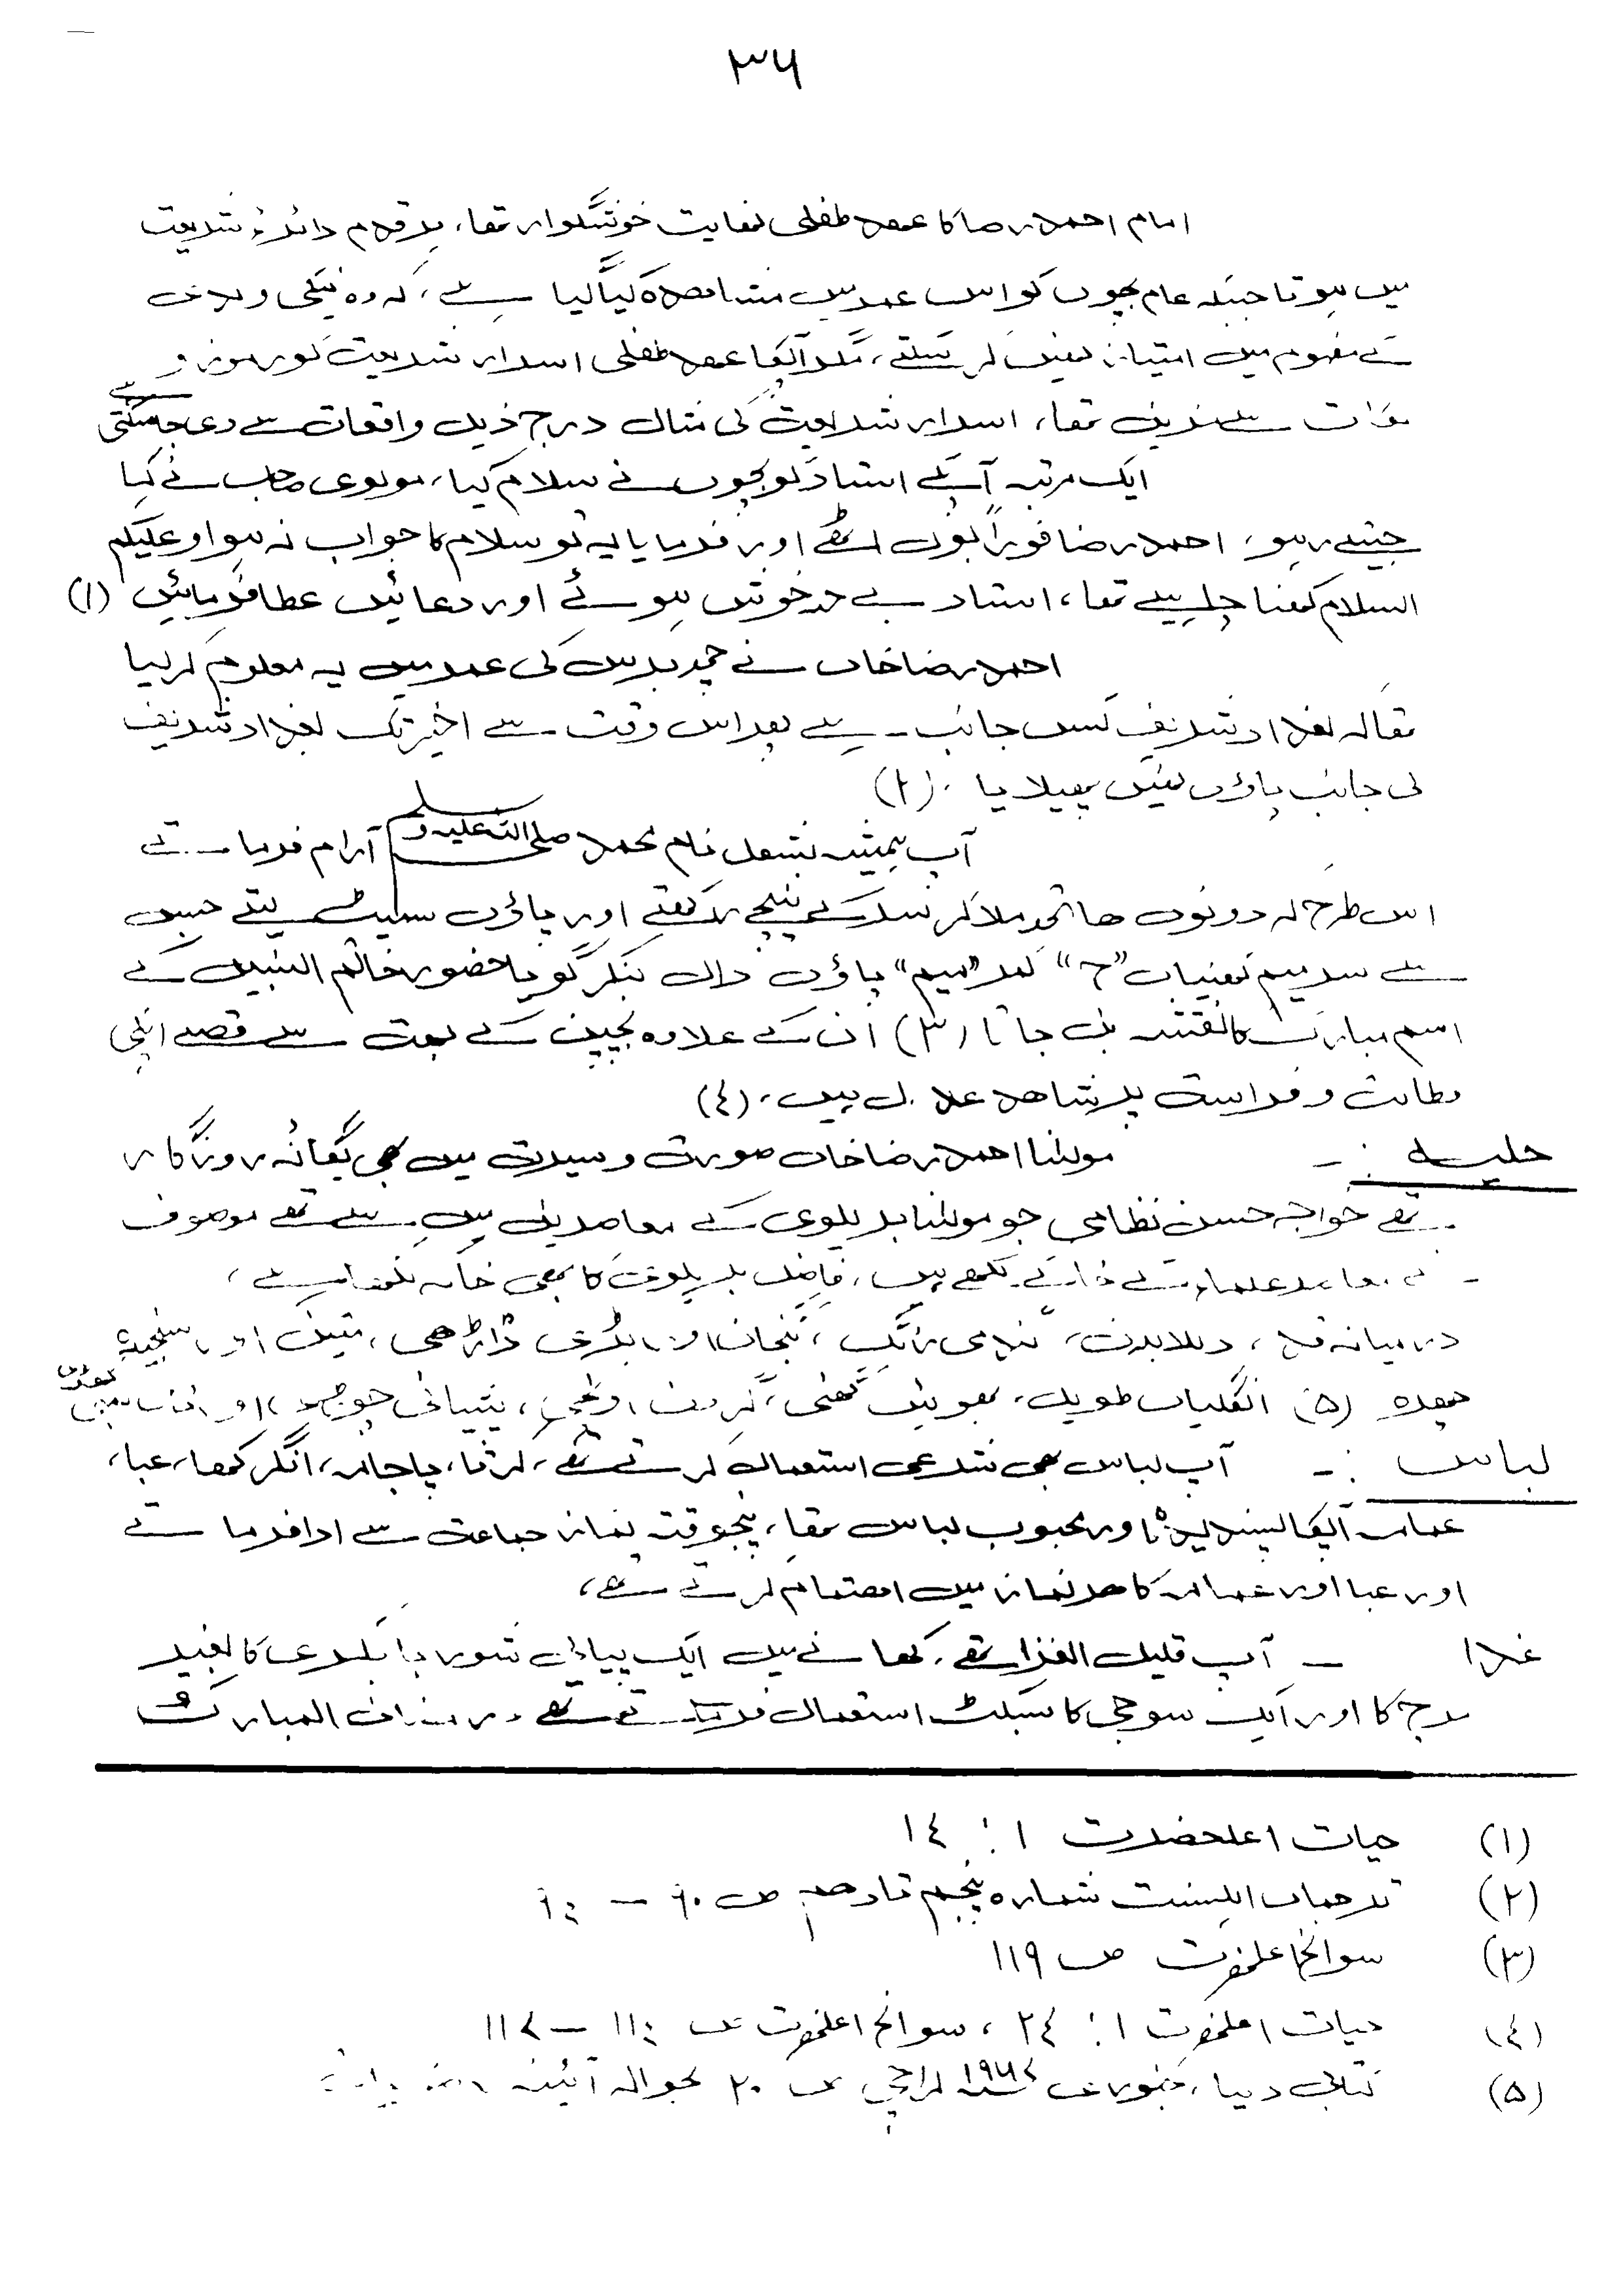 ۳۶
امام احمد رضا کا عھد طفلی نھایت خوشگوار تھا، ہر قدم دائرۂ شریعت
میں ہوتا جبکہ عام بچوں کو اس عمر میں مشاھدہ کیا گیا ہے، کہ وہ نیکی و بدی
کے مفہوم میں امتیاز نھیں کر سکتے، مگر آپکا عھد طفلی اسرار شریعت کے رموز و
نکات سے مزین تھا، اسرار شریعت کی مثال درج ذیل واقعات سے دی جاسکتی ہے
ایک مرتبہ آپکے استاد کو بچوں نے سلام کیا، مولوی صاحب نے کہا
جیتے رہو، احمد رضا فوراً بول اٹھے اور فرمایا یہ تو سلام کا جواب نہ ہوا وعلیکم
السلام کھنا چاہیے تھا، استاد بے حد خوش ہوئے اور دعائیں عطا فرمائیں (۱)
احمد رضا خاں نے چھ برس کی عمر میں یہ معلوم کر لیا
تھا کہ بغداد شریف کس جانب ہے پھر اس وقت سے اخیر تک بغداد شریف
کی جانب پاؤں نہیں پھیلایا ۔ (۲)
آپ ہمیشہ بشکل نام محمد صلی اللہ علیہ وسلم آرام فرماتے
اس طرح کہ دونوں ھاتھ ملا کر سر کے نیچے رکھتے اور پاؤں سمیٹ لیتے جس
سے سر میم کہنیاں "ح" کمر "میم" پاؤں دال بنکر گویا حضور خاتم النبیین کے
اسم مبارک کا نقشہ بن جاتا (۳) ان کے علاوہ بچپن کے بہت سے قصے انکی
فطانت و فراست پر شاھد عدل ہیں، (٤)
حلیہ :۔ مولٰنا احمد رضا خاں صورت و سیرت میں بھی یگانۂ روزگار
تھے خواجہ حسن نظامی جو مولٰنا بریلوی کے معاصرین میں سے تھے موصوف
نے معاصر علماء کے خاکے لکھے ہیں، فاضل بریلوی کا بھی خاکہ لکھا ہے،
درمیانہ قد، دبلا بدن، گندمی رنگ، گنجان اور بڑی ڈاڑھی، متین اور سنجیدہ
چھرہ (۵) انگلیاں طویل، بھویں گھنی، گردن اونچی، پیشانی چوڑی اور
لباس :۔ آپ لباس بھی شرعی استعمال کرتے تھے، کرتا، پاجامہ، انگرکھا، عبا،
عمامہ آپکا پسندیدہ اور محبوب لباس تھا، پنجوقتہ نماز جماعت سے ادا فرماتے
اور عبا اور عمامہ کا ھر نماز میں اھتمام کرتے تھے،
غذا ۔ آپ قلیل الغذا تھے، کھانے میں ایک پیالی شوربا بکری کا بغیر
مرچ کا اور ایک سوجی کا بسکٹ استعمال فرماتے تھے رمضان المبارک
(۱) حیات اعلحضرت ۱ : ۱٤
(۲) ترجمان اہلسنت شمارہ پنجم تا دھم ص
(۳) سوانح اعلحضرت ص ۱۱۹
(٤) حیات اعلحضرت ۱ : ۲٤، سوانح اعلحضرت ص
(۵) کتابی دنیا، جنوری کراچی ص ۲۰ بحوالہ آئینہ